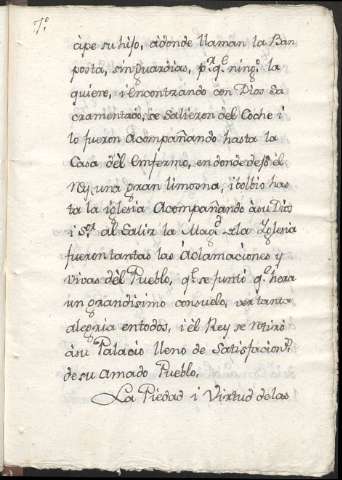 7º
àpe su hijo, àdonde llaman la Ran
posta, sin guardias, p.r q.e ning.º la
quiere, i encontrando con Dios Sa
cramentado, se Salieron del Coche i
lo fueron Acompañando hasta la
Casa del enfermo, en donde dejò el
Rey una gran limosna, i bolbio has
ta la iglesia Acompañando àsu Dios
i S.or al Salir la Mag.d de la Yglesia
fueron tantas las Aclamaciones y
vivas del Pueblo, q.e se juntò q.e hera
un grandisimo consuelo, ver tanta
alegria entodos, i èl Rey se retirò
àsu Palacio lleno de Satisfacion.s
de su Amado Pueblo.
La Piedad i Virtud delas